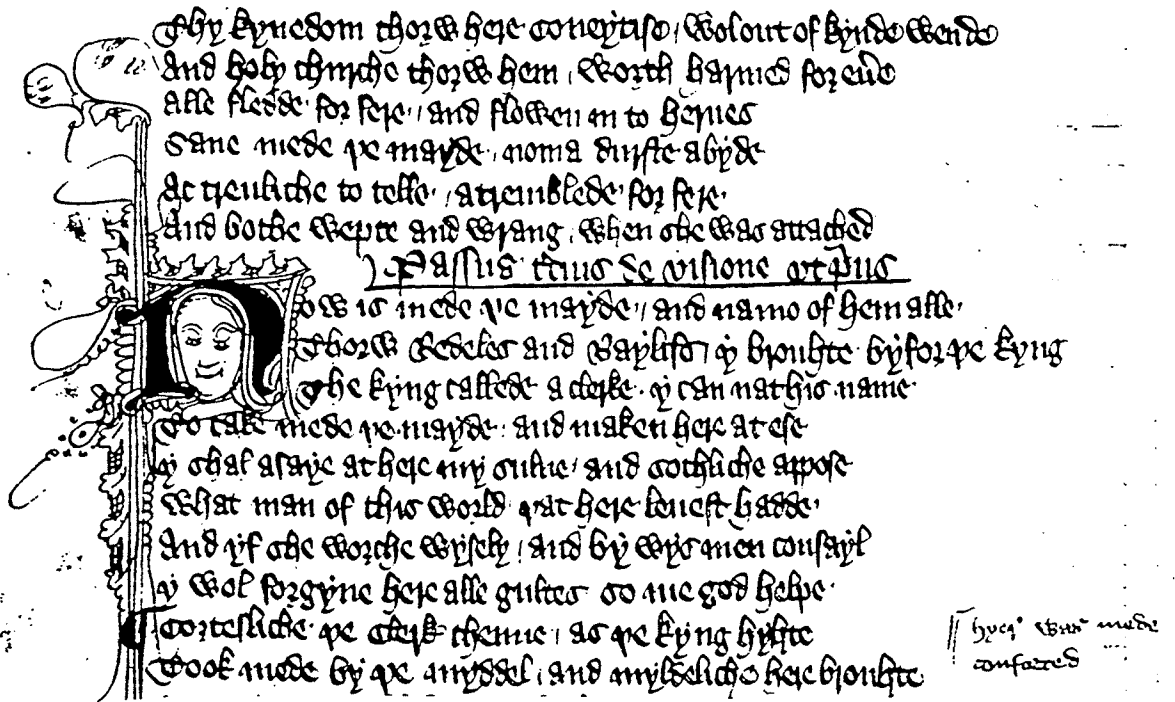 Thy kynedom thorw here coueytise / wol out of kynde wende
And holy churche thorw hem / worth harmed for eue
alle fledde for fere / and flowen in to hernes
Saue mede þe mayde / noma durste abyde
Ac treuliche to telle / a tremblede for fere
And bothe wepte and wrang / when she was attached
Passus tcius de visione vt pius
Now is mede þe mayde / and namo of hem alle
Thorw Bedeles and Baylifs / y brouhte byfor þe kyng
The kyng callede a clerke / y can nat his name
To take mede þe mayde / and maken here at ese
y shal asaye at here my sulue / and sothliche appose
What man of this world / þat here leuest hadde
And yf she worche wysely / and by wys men consayl
y wol forgyue here alle gultes / so me god helpe
Cortesliche þe clerk thenne / as þe kyng hyhte
Took mede by þe myddel / and myldeliche here brouhte
hyer was mede
conforted